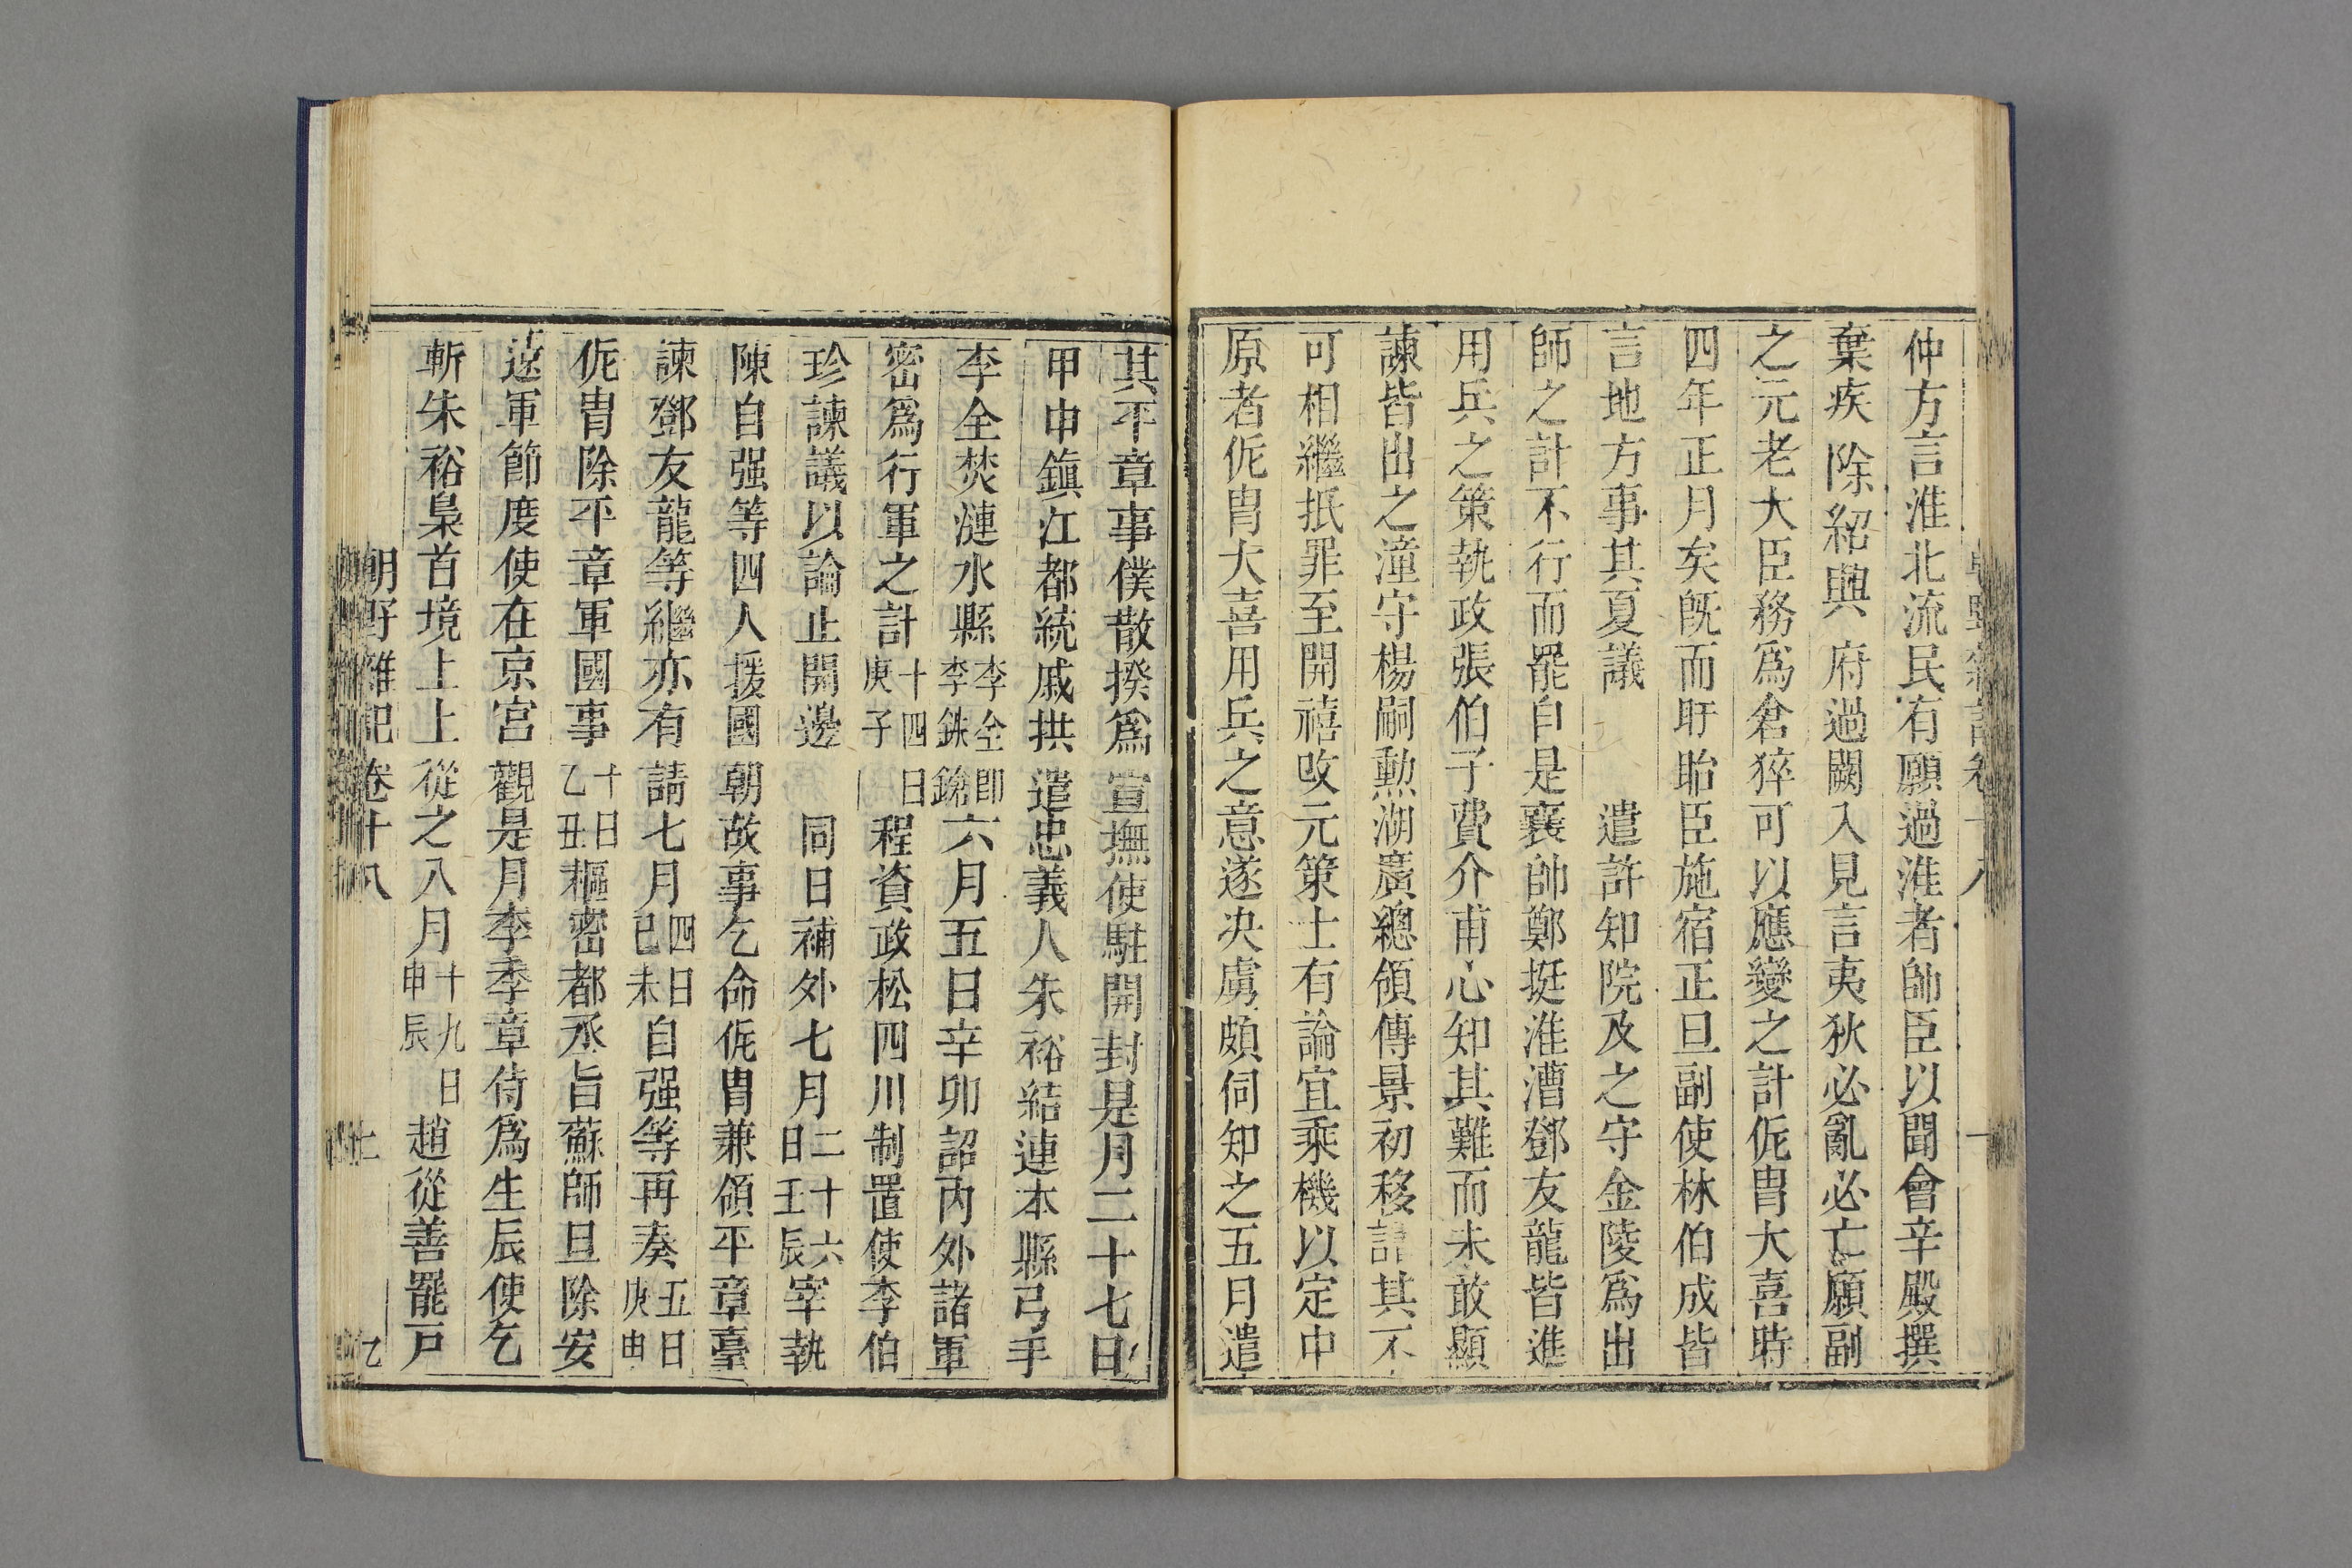 仲方言淮北流民有願過淮者帥臣以聞會辛殿撰
棄疾 除紹興 府過闕入見言夷狄必亂必亡願副
之元老大臣務爲倉猝可以應變之計侂胄大喜時
四年正月矣旣而盱眙臣施宿正旦副使林伯成皆
言地方事其夏議 遣許知院及之守金陵爲出
師之計不行而罷自是襄帥鄭挺淮漕鄧友龍皆進
用兵之策執政張伯子費介甫心知其難而未敢顯
諫皆出之潼守楊嗣勲湖廣總領傅景初移 其不
可相繼抵罪至開禧攺元策士有論宜乘機以定中
原者侂胄大喜用兵之意遂決虜頗伺知之五月遣
其平章事僕散揆爲宣撫使駐開封是月二十七日
甲申鎭江都統戚拱遣忠義人朱裕結連本縣弓手
李全焚漣水縣李全卽李鐵鎗六月五日辛卯詔內外諸軍
密爲行軍之計十四日庚子程資政松四川制置使李伯
珍諫議以論止開邊 同日補外七月二十六日壬辰宰執
陳自强等四人援國朝故事乞命侂胄兼領平章臺
諫鄧友龍等繼亦有請七月四日己未自强等再奏五日庚申
侂胄除平章軍國事十日乙丑樞密都丞旨蘇師旦除安
遠軍節度使在京宮觀是月李季章侍爲生辰使乞
斬朱裕梟首境上上從之八月十九日甲辰趙從善罷戸
朝野雜記卷十八